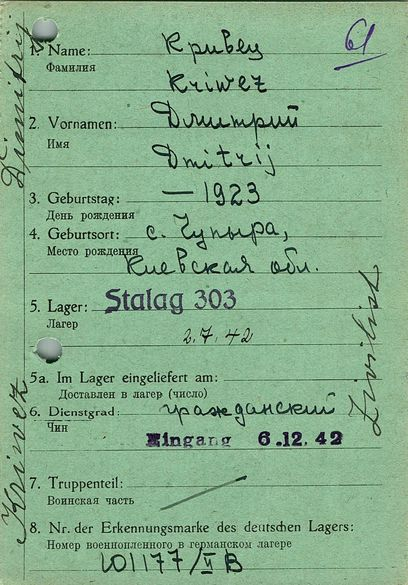 61
1. Name: Кривец
Фамилия
Kriwez
2. Vornamen: Дмитрий
Имя
Dmitrij
3. Geburtstag: — 1923
День рождения
4. Geburtsort: с. Чупыра,
Место рождения
Киевская обл.
5. Lager: Stalag 303
Лагер
2.7.42
5a. Im Lager eingeliefert am:
Доставлен в лагер (число)
6. Dienstgrad: гражданский
Чин
Eingang 6.12.42
7. Truppenteil:
Воинская часть
8. Nr. der Erkennungsmarke des deutschen Lagers:
Номер военнопленного в германском лагере
101177/II B
Kriwez Dimitrij
Zivilist